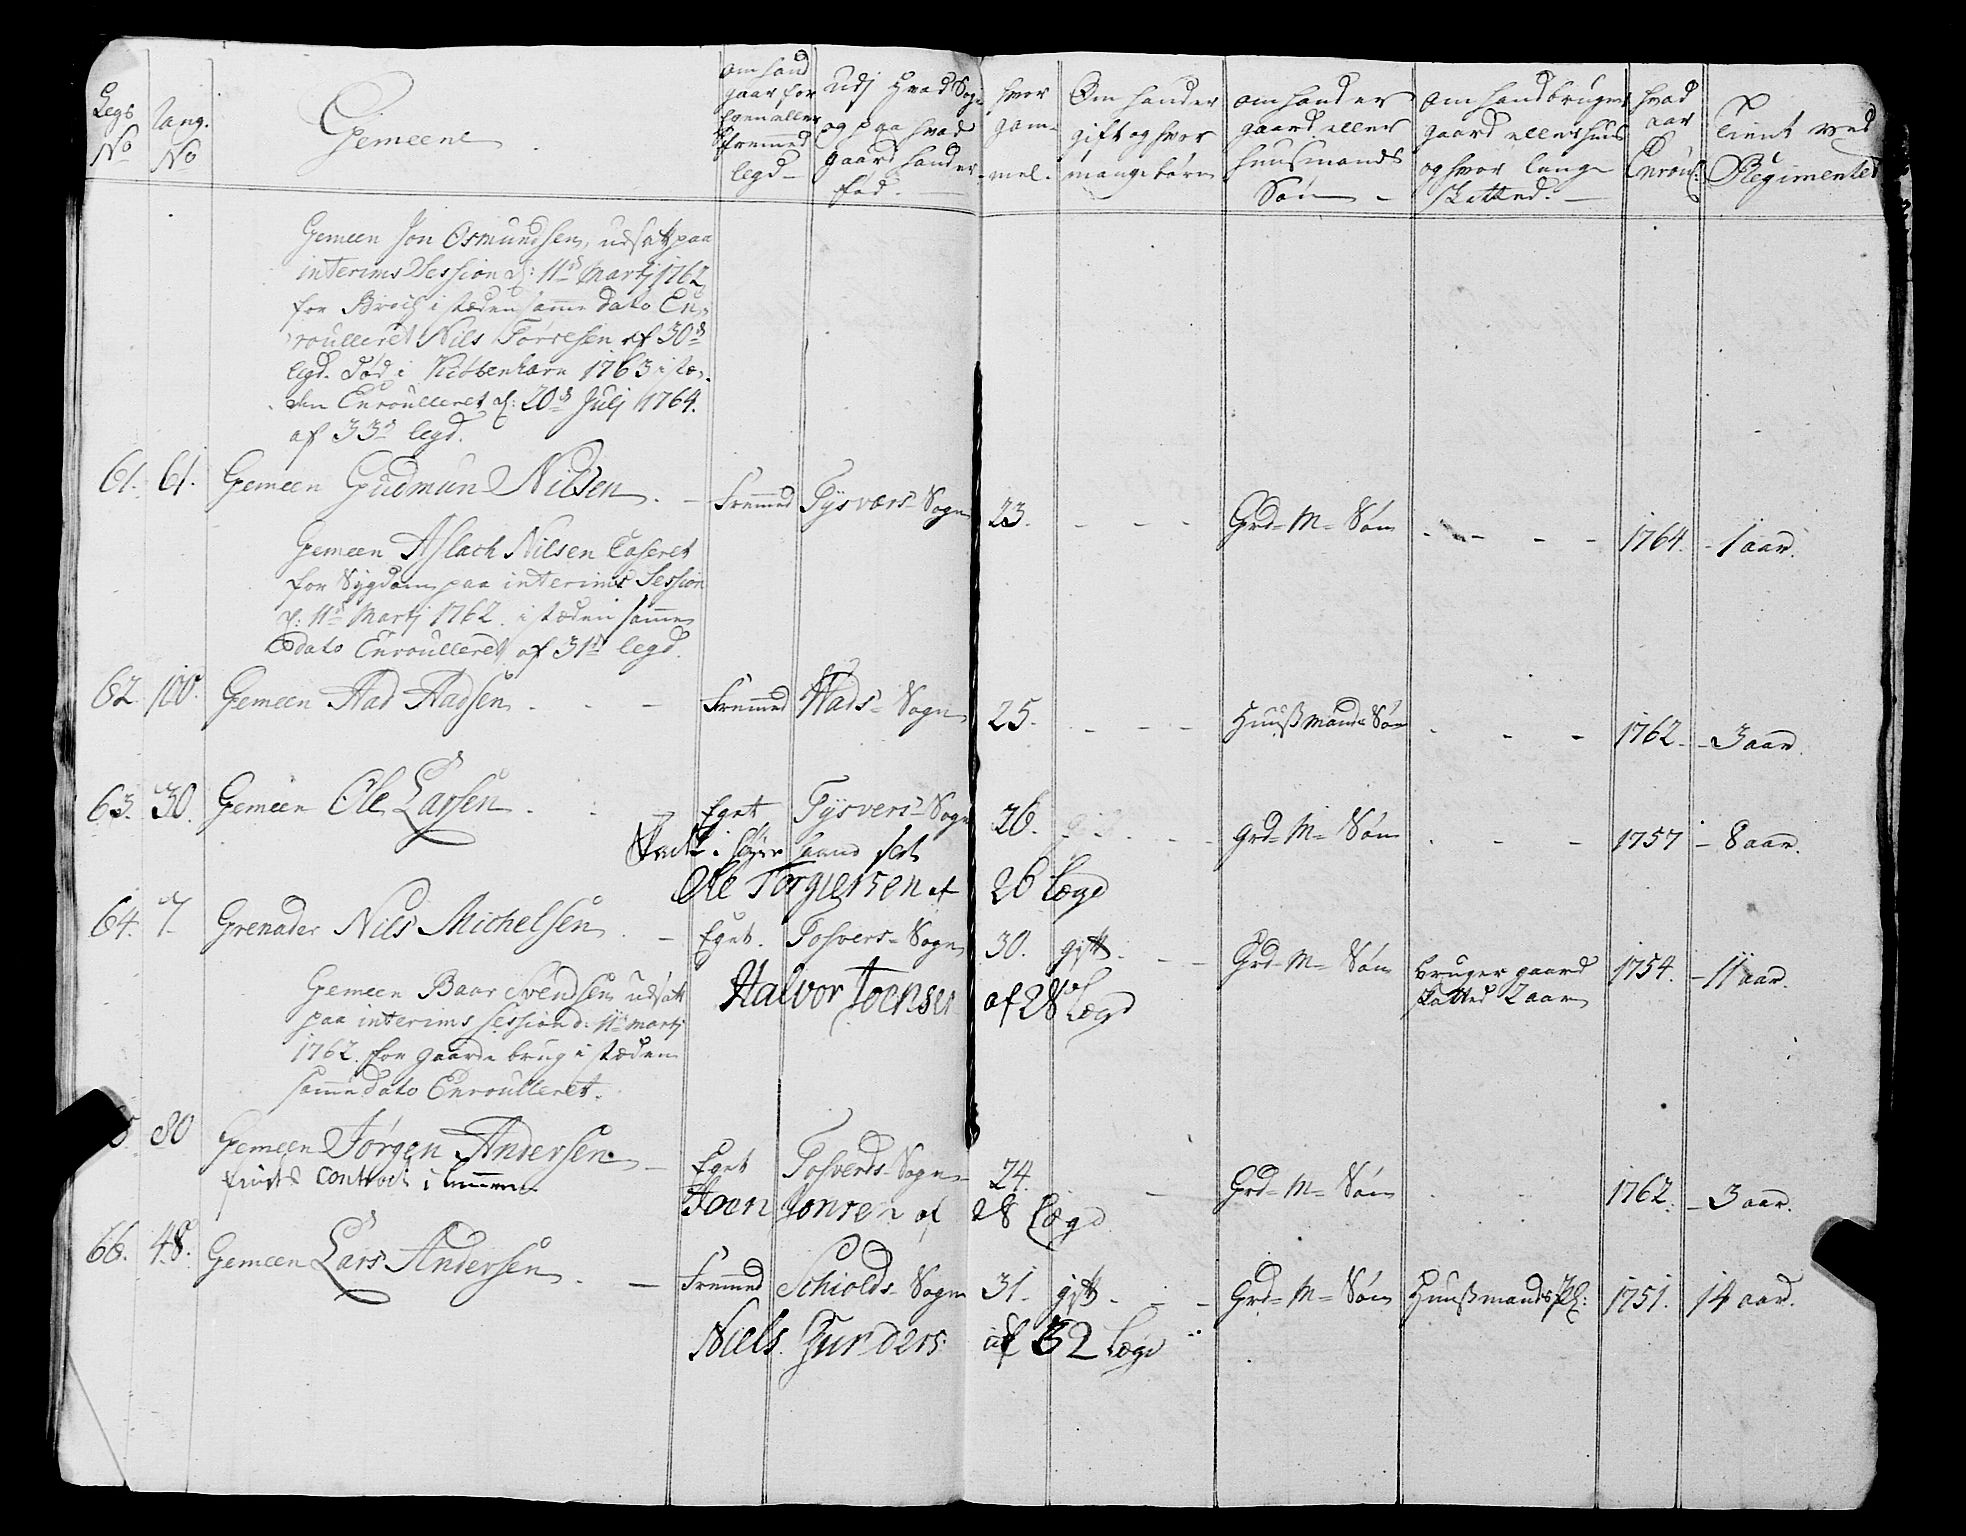 Legs No
Rang. No
Gemeene
om hand gaar for Egen eller fremmed legd
Udj Hvad Sogn og paa hvad gaard hand er fød.
hvor gam-mel.
Om hand er gift og hvor mange børn
om hand er gaard eller huusmands Søn
om hand bruger gaard eller huus og hvor lange skatted.
hvad aar Enroul:
Tient ved Regimentet
Gemeen Jon Osmundsen, udsatt paa
interims Session d: 11te Martj 1762
for Brock i stæden samme dato En-
roulleret Nils Torresen af 30te
legd. død i Kiøbenhavn 1763 i stæ-
den Enroulleret d: 20de Julj 1764.
af 33te legd.
61. 61. Gemeen Gudmun Nilsen. - Fremmed Tysvers Sogn 23. - - - Grd= M= Søn - - - 1764. - 1 aar.
Gemeen Aslach Nilsen Caseret
for Sygdom paa interims Session
d: 11te Martj 1762. i stæden samme
dato Enroulleret af 31te legd.
62. 100. Gemeen Aad Aadsen. - - Fremmed Wads= Sogn 25. - - - Huusmands Søn - - - 1762. - 3 aar.
63. 30. Gemeen Ole Larsen. Eget Tysvers= Sogn 26. - - Grd= M= Søn - - 1757 - 8 aar.
i
Ole Torgiersen af 26 Lægd
64. 7. Grenader Nils Michelsen. - Eget. Tosvers= Sogn 30. gift. - - Grd= M= Søn bruger gaard skatted 2 aar 1754. - 11 aar.
Halvor Joensen af 28 Lægd
Gemeen Baar Svendsen udsatt
paa interims session d: 11te martj
1762. for gaards brug i stæden
samme dato Enroulleret.
5 80 Gemeen Jørgen Andersen. - Eget Tosverds= Sogn 24. - Grd= M= Søn - - 1762. - 3 aar.
contract i
Joen Jonsen af 28 Lægd
66. 48. Gemeen Lars Andersen. - Fremmed Schiolds= Sogn 31. gift - - - Grd= M= Søn Huusmands Pl: 1751. 14 aar.
Niels Gunders af 32 Lægd